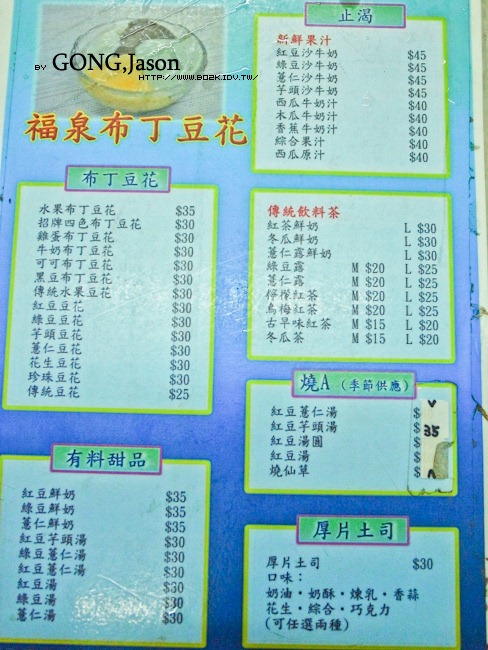 BY GONG,Jason
HTTP://WWW.BO2K.IDV.TW/
福泉布丁豆花
布丁豆花
水果布丁豆花 $35
招牌四色布丁豆花 $30
雞蛋布丁豆花 $30
牛奶布丁豆花 $30
可可布丁豆花 $30
黑豆布丁豆花 $30
傳統水果豆花 $30
紅豆豆花 $30
綠豆豆花 $30
芋頭豆花 $30
薏仁豆花 $30
花生豆花 $30
珍珠豆花 $30
傳統豆花 $25
有料甜品
紅豆鮮奶 $35
綠豆鮮奶 $35
薏仁鮮奶 $35
紅豆芋頭湯 $30
綠豆薏仁湯 $30
紅豆薏仁湯 $30
紅豆湯 $30
綠豆湯 $30
薏仁湯 $30
止渴
新鮮果汁
紅豆沙牛奶 $45
綠豆沙牛奶 $45
薏仁沙牛奶 $45
芋頭沙牛奶 $45
西瓜牛奶汁 $40
木瓜牛奶汁 $40
香蕉牛奶汁 $40
綜合果汁 $40
西瓜原汁 $40
傳統飲料茶
紅茶鮮奶 L $30
冬瓜鮮奶 L $30
薏仁露鮮奶 L $30
綠豆露 M $20 L $25
薏仁露 M $20 L $25
檸檬紅茶 M $20 L $25
烏梅紅茶 M $20 L $25
古早味紅茶 M $15 L $20
冬瓜茶 M $15 L $20
燒A (季節供應)
紅豆薏仁湯 $
紅豆芋頭湯 $ 35
紅豆湯圓 $
紅豆湯 $
燒仙草 $
厚片土司
厚片土司 $30
口味：
奶油·奶酥·煉乳·香蒜
花生·綜合·巧克力
(可任選兩種)